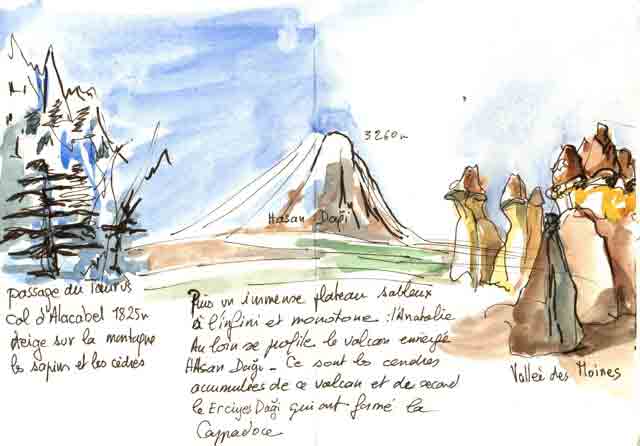 3260m
Hasan Daği
passage du Taurus
col d'Alacabel 1825m
Neige sur la montagne
les sapins et les cèdres
Puis un immense plateau sableux
à l'infini et monotone : l'Anatolie
Au loin se profile le volcan enneigé
HAsan Daği - Ce sont les cendres
accumulées de ce volcan et de second
le Erciyes Daği qui ont formé la
Cappadoce
Vallée des Moines